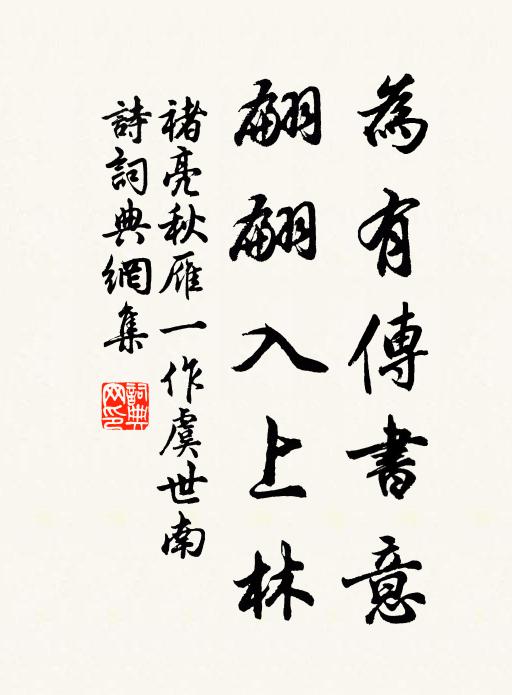 為有傳書意
翩翩入上林
褚亮秋雁一作虞世南
詩詞典網集
詞典
网印